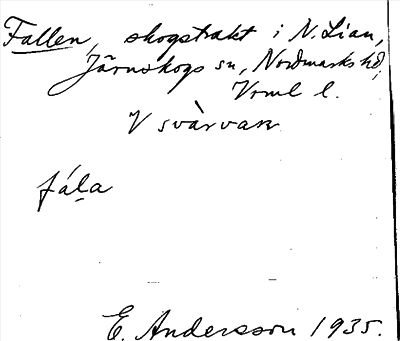 Fallen, skogstrakt i N. Lian,
Järnskogs sn, Nordmarks hd,
Vrml l.
V svàrvan
fáḷa
E. Andersson 1935.